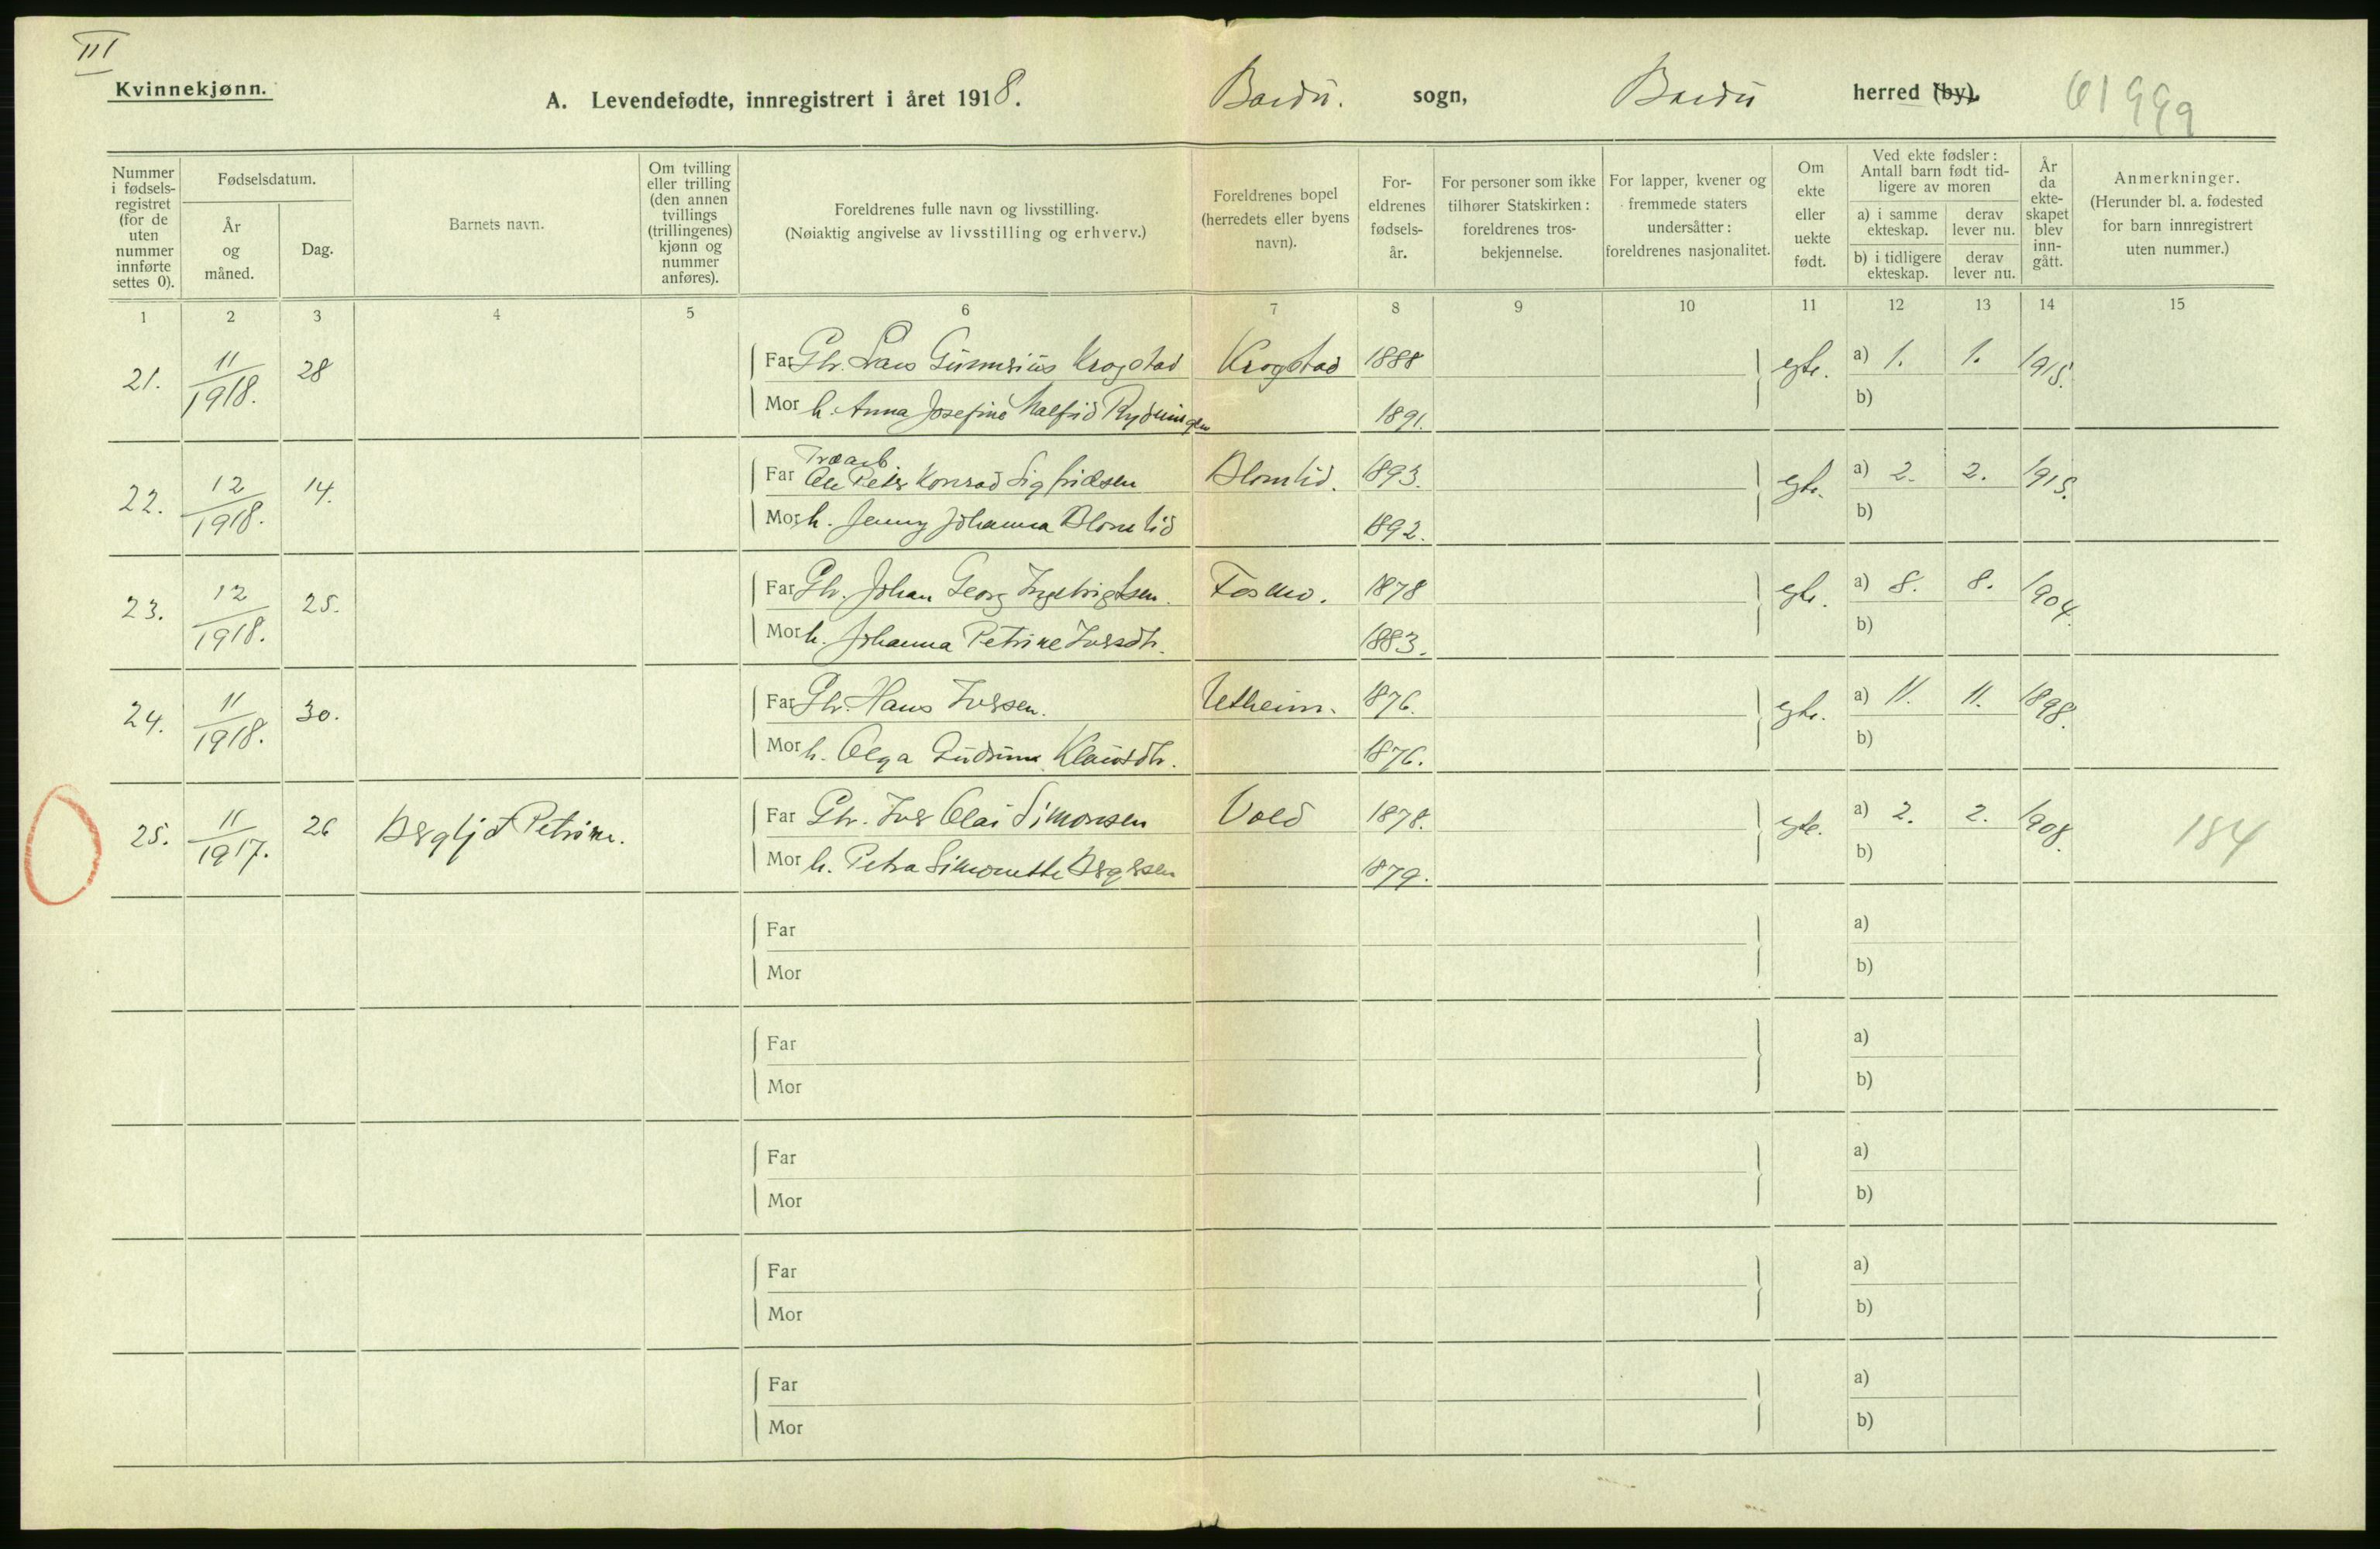 III
Kvinnekjønn.
A. Levendefødte, innregistrert i året 1918. Bardu. sogn, Bardu herred (by).
Nummer i fødsels-registret (for de uten nummer innførte settes 0).
Fødselsdatum.
År og måned.
Dag.
Barnets navn.
Om tvilling eller trilling (den annen tvillings (trillingenes) kjønn og nummer anføres).
Foreldrenes fulle navn og livsstilling.
(Nøiaktig angivelse av livsstilling og erhverv.)
Foreldrenes bopel (herredets eller byens navn).
For-eldrenes fødsels-år.
For personer som ikke tilhører Statskirken: foreldrenes tros-bekjennelse.
For lapper, kvener og fremmede staters undersåtter: foreldrenes nasjonalitet.
Om ekte eller uekte født.
Ved ekte fødsler: Antall barn født tid-ligere av moren
a) i samme ekteskap. derav lever nu.
b) i tidligere ekteskap. derav lever nu.
År da ekte-skapet blev inn-gått.
Anmerkninger.
(Herunder bl. a. fødested for barn innregistrert uten nummer.)
1 2 3 4 5 6 7 8 9 10 11 12 13 14 15
21. 11/1918. 28 Far Gbr. Lars Gunnerius Krogstad Krogstad 1888 egte. a) 1. 1. 1915.
Mor h. Anna Josefine Malfrid Rydningen 1891. b)
Træarb.
22. 12/1918. 14. Far Ole Peter Konrad Sigfridsen Blomlid. 1893. egte. a) 2. 2. 1915.
Mor h. Jenny Johanna Blomlid 1892. b)
23. 12/1918. 25. Far Gbr. Johan Georg Ingebrigtsen. Fosmo. 1878 egte. a) 8. 8. 1904.
Mor h. Johanna Petrine Iversdtr. 1883. b)
24. 11/1918. 30. Far Gbr. Hans Iversen. 1876. egte. a) 11. 11. 1898.
Mor h. Olga Gudrun Klausdtr. 1876. b)
25. 11/1917. 26 Bergljot Petrine. Far Gbr. Iver Olai Simonsen Vold 1878. egte. a) 2. 2. 1908. 184
Mor h. Petra Simonette Bergersen 1879. b)
Far a)
Mor b)
Far a)
Mor b)
Far a)
Mor b)
Far a)
Mor b)
Far a)
Mor b)